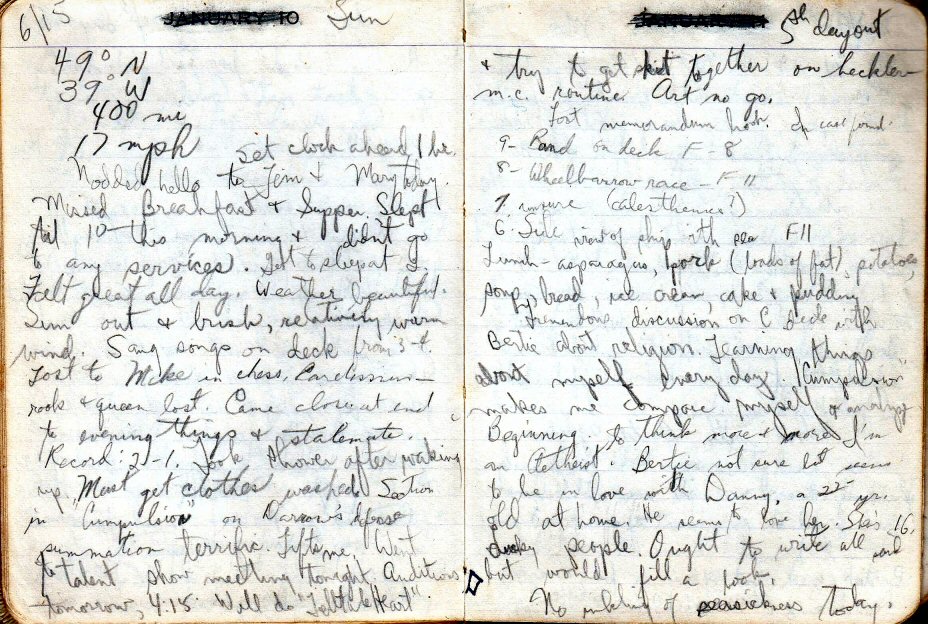 6/15 JANUARY 10 Sun
49° N
39° W
400 mi
17 mph Set clock ahead 1 hr.
Nodded hello to Jim & Mary today.
Missed Breakfast & Supper. Slept
til 10 this morning & didn't go
to any services. to sleep at
Felt great all day. Weather beautiful.
Sun out & brisk, relatively warm
wind. Sang songs on deck from 3-4.
Lost to Mike in chess.
rook & queen lost. Came close at end
to evening things & stalemate.
Record: 2-1. Took shower after waking
up. Must get clothes washed. Section
in "Compulsion" on Darrow's defense
summation terrific. Lifts me. Went
to talent show meeting tonight. Auditions
tomorrow, 4:15. Will do "Telltale Heart"
5th day out
& try to get skit together on heckler-
m.c. routine. Art no go.
Lost memorandum book. In case found:
9- Band on deck F-8
8- Wheelbarrow race - F 11
7. (calesthenics?)
6. Side view of ship with sea F11
Lunch - asparagus, pork (loads of fat), potatoes,
soup, bread, ice cream, cake & pudding
Tremendous discussion on C deck with
Bertie about religion. Learning things
about myself every day. "Compulsion"
makes me compare myself & analyze
Beginning to think more & more I'm
an Atheist. Bertie not sure but seems
to be in love with Danny, a 22 yr.
old at home. He seems to love her. She's 16.
people. Ought to write all said
but would fill a book.
No inkling of seasickness today.